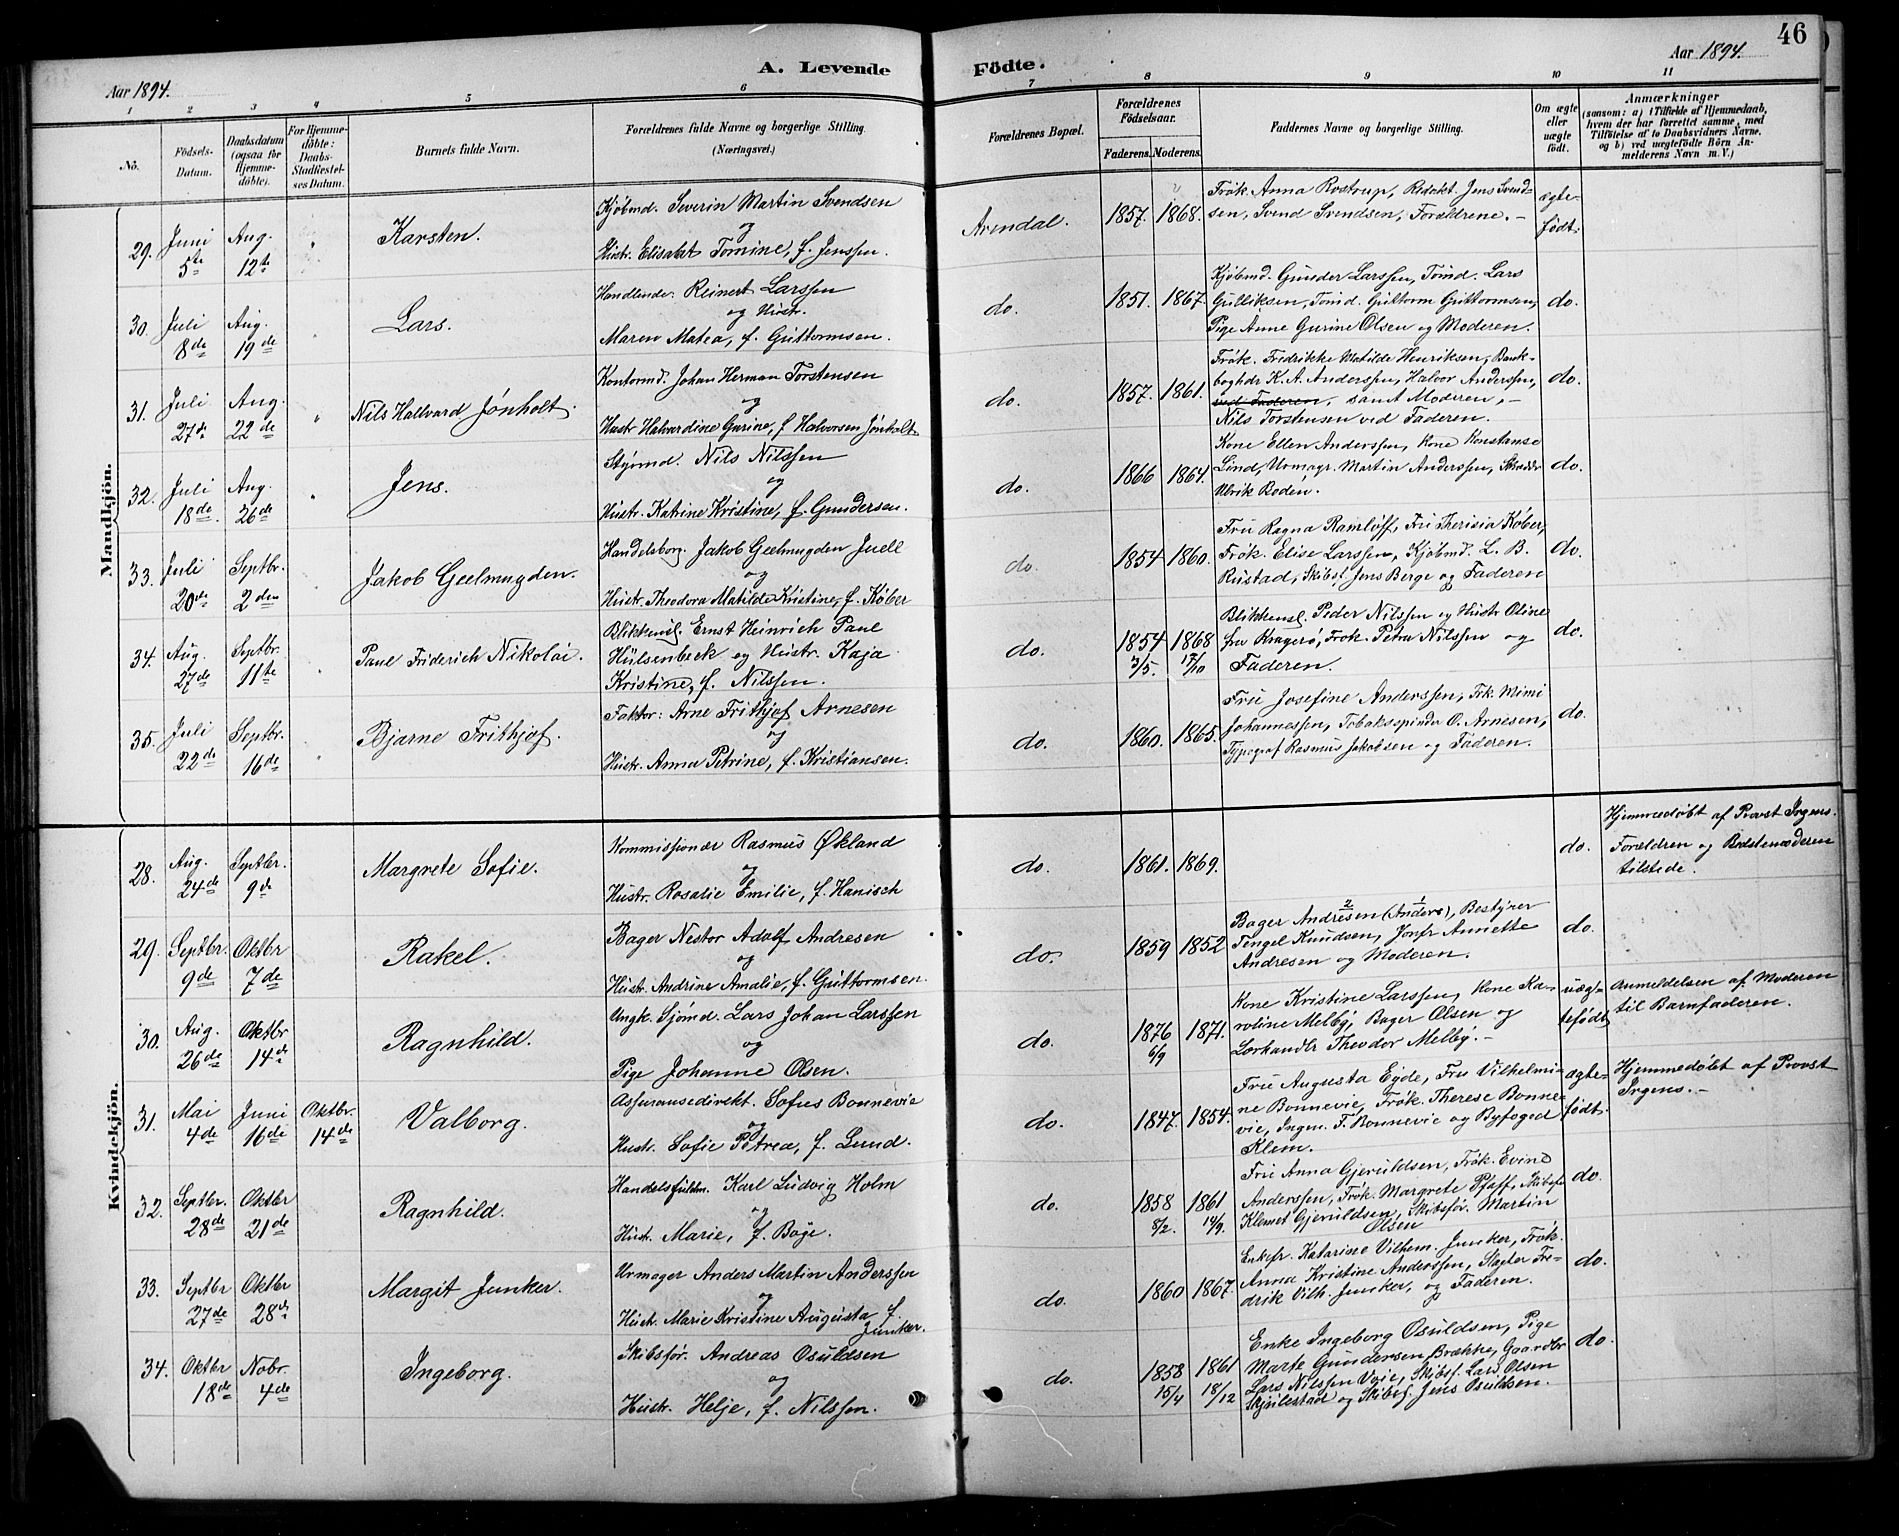 46
Aar 1894.
A. Levende Födte.
Aar 1894.
1 2 3 4 5 6 7 8 9 10 11
No.
Födsels-Datum.
Daabsdatum (ogsaa for Hjemme-döbte).
For Hjemme-döbte: Daabs-Stadfæstel-ses Datum.
Barnets fulde Navn.
Forældrenes fulde Navne og borgerlige Stilling.
(Næringsvei.)
Forældrenes Bopæl.
Forældrenes Födselsaar.
Faderens. Moderens.
Faddernes Navne og borgerlige Stilling.
Om ægte eller uægte födt.
Anmærkninger
(saasom: a) i Tilfælde af Hjemmedaab, hvem der har forrettet samme, med Tilföielse af to Daabsvidners Navne, og b) ved uægtefödte Börn Anmelderens Navn m. V.)
Mandkjön.
29. Juni 5te Aug. 12te Karsten.
Kjøbmd. Severin Martin Svendsen
og
Hustr. Elisabet Tomine, f. Jenssen.
Arendal. 1857. 1868.
Frøk. Anna Rostrup, Redakt. Jens Svend-
sen, Svend Svendsen, Forældrene. -
ægte-
født.
30. Juli 8de Aug. 19de Lars.
Handlende Reinert Larssen
og Hustr.
Maren Matea, f. Guttormsen.
do. 1851. 1867.
Kjøbmd. Gunder Larssen, Tømd. Lars
Gulliksen, Tømd. Guttorm Guttormsen,
Pige Anne Gurine Olsen og Moderen.
do.
31. Juli 27de Aug. 22de Nils Hallvard Jønholt.
Kontormd. Johan Herman Torstensen
og
Hustr Halvardine Gurine, f Halvorsen Jønholt.
do. 1857. 1861.
Frøk. Fredrikke Matilde Henriksen, Bank-
boghdr K. A. Anderssen, Halvor Anderssen,
ved Faderen, samt Moderen, -
Nils Torstensen ved Faderen.
do.
32. Juli 18de. Aug. 26de Jens.
Styrmd. Nils Nilssen
og
Hustr. Katrine Kristine, f. Gundersen.
do. 1866 1864.
Kone Ellen Anderssen, Kone Konstanse
Lind, Urmagr. Martin Anderssen, Skrædder
Ulrik Bodén.
do.
33. Juli 20de Septbr. 2den Jakob Geelmuyden.
Handelsborg. Jakob Geelmuyden Juell
og
Hustr. Theodora Matilde Kristine, f. Køber
do. 1854 1860.
Fru Ragna Ramløff, Fru Therisia Køber,
Frøk. Elise Larssen, Kjøbmd. L. B.
Rustad, Skibsf. Jens Berge og Faderen
do.
34. Aug. 27de Septbr. 11te Paul Friderich Nikolai.
Blikkensl. Ernst Heinrich Paul
Hülsenbeck og Hustr. Kaja
Kristine, f. Nilssen.
do. 1854 3/5. 1868 17/10
Blikkensl. Peder Nilssen og Hustr Oline
fra Kragerö, Frøk. Petra Nilssen og
Faderen.
do.
35. Juli 22de Septbr. 16de Bjarne Frithjof.
Faktor: Arne Frithjof Arnesen
og
Hustr. Anna Petrine, f. Kristiansen.
do. 1860. 1865.
Fru Josefine Anderssen, Frk. Mimi
Johannessen, Tobaksspinder O. Arnesen,
Typograf Rasmus Jakobsen og Faderen.
do.
Kvindekjön.
28. Aug. 24de Septbr. 9de Margrete Sofie.
Kommissionær Rasmus Økland
og
Hustr. Rosalie Emilie, f. Hanisch
do. 1861. 1869.
do.
Hjemmedøbt af Provst Irgens.
Forældren og Bedstemoderen
tilstede.
29. Septbr. 9de Oktbr 7de Rakel.
Bager Nestor Adolf Andresen
og
Hustr. Andrine Amalie, f. Guttormsen.
do. 1859 1852
Bager Andresen (Anders), Bestyrer
Tengel Knudsen, Jomfr Annette
Andresen og Moderen.
do.
30. Aug. 26de Oktbr 14de Ragnhild.
Ungk. Sjømd. Lars Johan Larssen
og
Pige Johanne Olsen.
do. 1876 6/9 1871.
Kone Kristine Larssen, Kone Ka-
roline Melby, Bager Olsen og
Lærhandlr Theodor Melby. -
uæg-
tefødt
Anmeldelsen af Moderen
til Barnfaderen.
31. Mai 4de Juni 16de Oktbr. 14de Valborg.
Assuransedirekt. Sofus Bonnevie
og
Hustr. Sofie Petrea, f. Lund.
do. 1847. 1854.
Fru Augusta Eyde, Fru Vilhelmi-
ne Bonnevie, Frøk. Therese Bonne-
vie, Ingen. F. Bonnevie og Byfoged
Klem.
ægte-
født.
Hjemmedøbt af Provst
Irgens. -
32. Septbr. 28de Oktbr 21de Ragnhild.
Handelsfuldm. Karl Ludvig Holm
og
Hustr. Marie, f. Bøge.
do. 1858 8/2. 1861 14/9.
Fru Anna Gjeruldsen, Frøk. Evind
Anderssen, Frøk. Margrete Pfaff, Skibsfø
Klemet Gjeruldsen, Skibsfør. Martin
Olsen
do.
33. Septbr 27de Oktbr 28de Margit Junker.
Urmager Anders Martin Anderssen
og
Hustr. Marie Kristine Augusta f.
Junker.
do. 1860 1867.
Enkefr. Katarine Vilhem. Junker, Frøk.
Anna Kristine Anderssen, Slagter Fre-
drik Vilh. Junker, og Faderen.
do.
34. Oktbr 18de Nobr. 4de Ingeborg.
Skibsfør. Andreas Osuldsen
og
Hustr. Helje, f. Nilssen.
do. 1858 15/4 1861 18/12
Enke Ingeborg Osuldsen, Pige
Marte Gundersen Brække, Gaardbr
Lars Nilssen Voie, Skibsf. Lars Olsen
Skjulestad og Skibsf. Jens Osuldsen.
do.